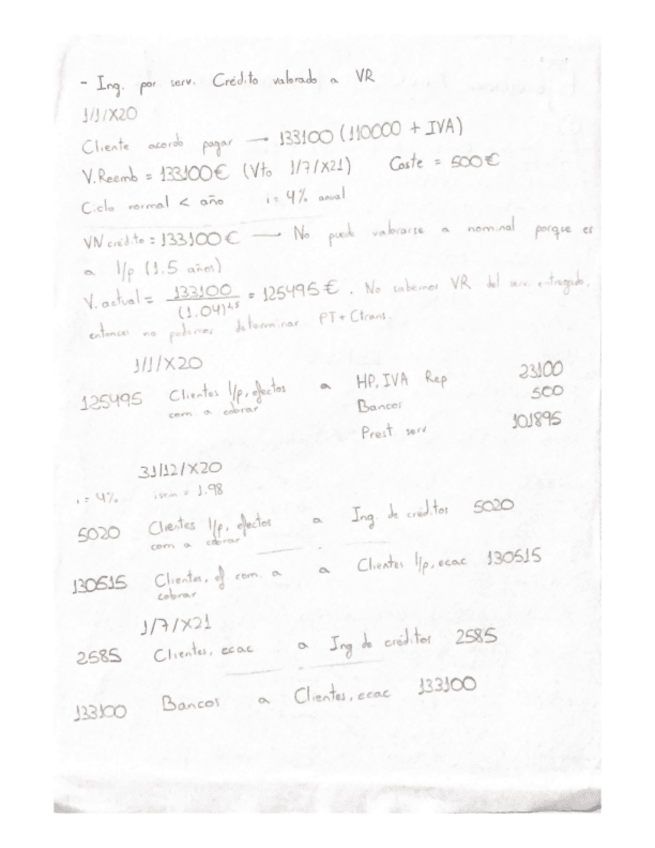 - Ing. por serv. Crédito valorado a VR
1/1/X20
Cliente acordo pagar → 133100 (110000 + IVA)
V. Reemb = 133100€ (Vto 1/7/X21) Coste = 500€
Ciclo normal < año i = 4% anual
VN crédito = 133100€ → No puede valorarse a nominal porque es
a l/p (1.5 años)
V. actual = 133100 / (1.04)^1.5 = 125495€. No sabemos VR del serv. entregado,
entonces no podemos determinar PT + Ctrans.
1/1/X20
125495 Clientes l/p, efectos com a cobrar a HP, IVA Rep 23100
Bancos 500
Prest serv 101895
31/12/X20
i = 4% isem = 1.98
5020 Clientes l/p, efectos com a cobrar a Ing. de créditos 5020
130515 Clientes, ef com. a cobrar a Clientes l/p, ecac 130515
1/7/X21
2585 Clientes, ecac a Ing de créditos 2585
133100 Bancos a Clientes, ecac 133100